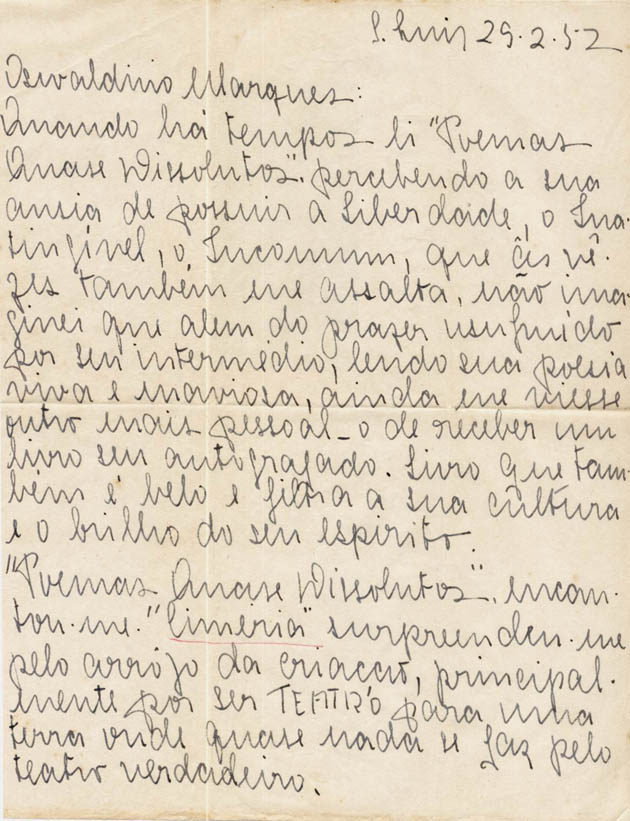 S. Luis 29.2.52
Oswaldino Marques:
Quando há tempos li "Poemas
Quase Dissolutos", percebendo a sua
ansia de possuir a Liberdade, o Ina-
tingível, o Incomum, que às vê-
zes também me assalta, não ima-
ginei que alem do prazer usufruido
por seu intermédio, lendo sua poesia
viva e maviosa, ainda me viesse
outro mais pessoal - o de receber um
livro seu autografado. Livro que tam-
bém é belo e filtra a sua cultura
e o brilho do seu espirito.
"Poemas Quase Dissolutos", encan-
tou-me. "Cimeria" surpreendeu-me
pelo arrôjo da criação, principal-
mente por ser TEATRO para uma
terra onde quase nada se faz pelo
teatro verdadeiro.